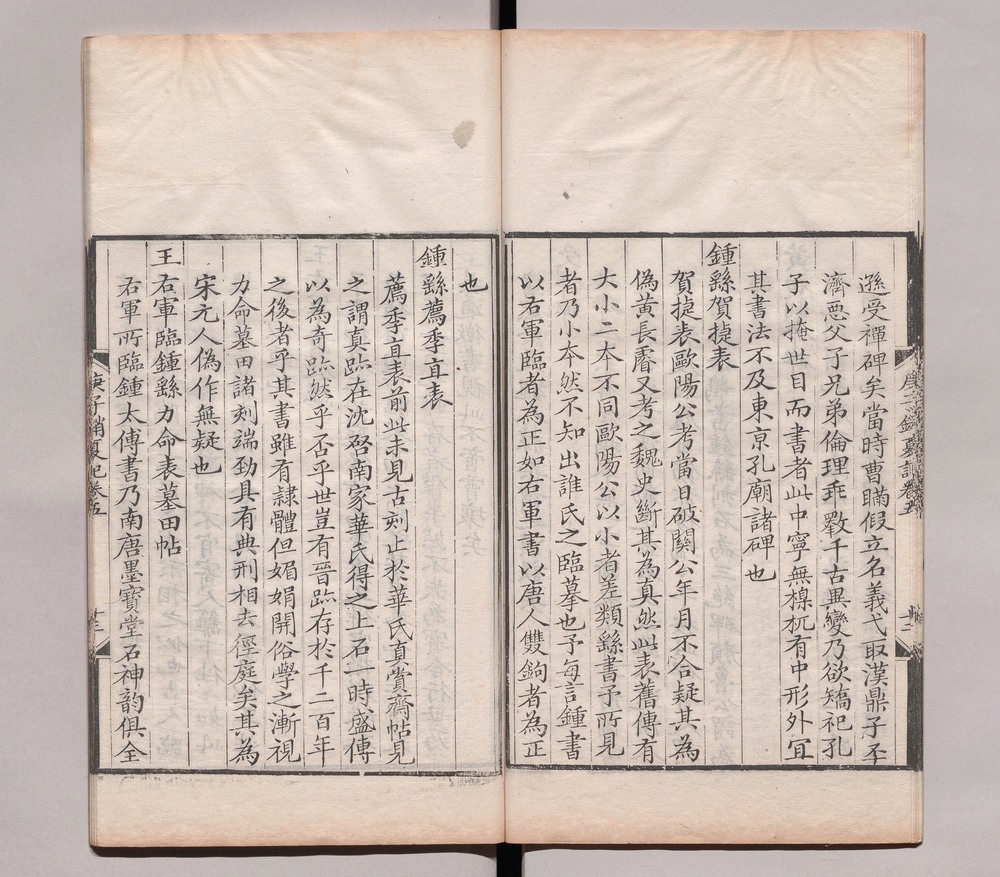 遜受禪碑矣當時曹瞞假立名義弋取漢鼎子丕
濟惡父子兄弟倫理乖斁千古異變乃欲矯祀孔
子以掩世目而書者此中寧無㮙杌有中形外宜
其書法不及東京孔廟諸碑也
鍾繇賀捷表
賀捷表歐陽公考當日破關公年月不合疑其為
偽黃長睿又考之魏史斷其為真然此表舊傳有
大小二本不同歐陽公以小者差類繇書予所見
者乃小本然不知出誰氏之臨摹也予每言鍾書
以右軍臨者為正如右軍書以唐人雙鉤者為正
也
鍾繇薦季直表
薦季直表前此未見古刻止於華氏真賞齋帖見
之謂真跡在沈啓南家華氏得之上石一時盛傳
以為奇跡然乎否乎世豈有晉跡存於千二百年
之後者乎其書雖有隸體但媚娟開俗學之漸視
力命墓田諸刻端勁具有典刑相去徑庭矣其為
宋元人偽作無疑也
王右軍臨鍾繇力命表墓田帖
右軍所臨鍾太傅書乃南唐墨寶堂石神韵俱全
庚子銷夏記卷五